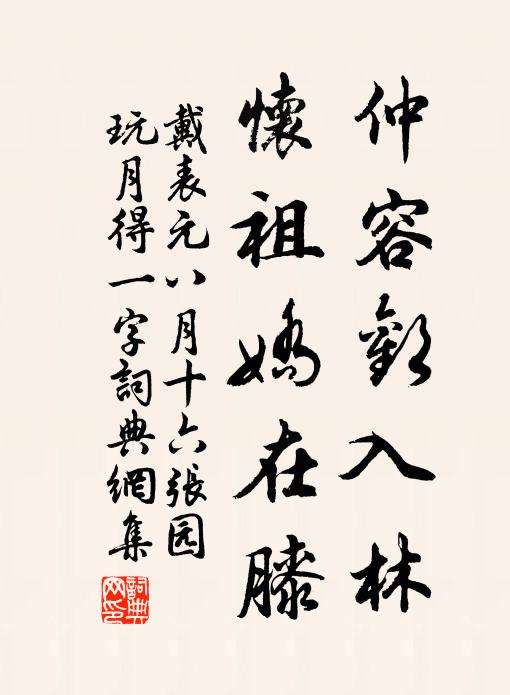 仲容歡入林
懷祖嬌在膝
戴表元八月十六張园
玩月得一字詞典網集
詞典
网印